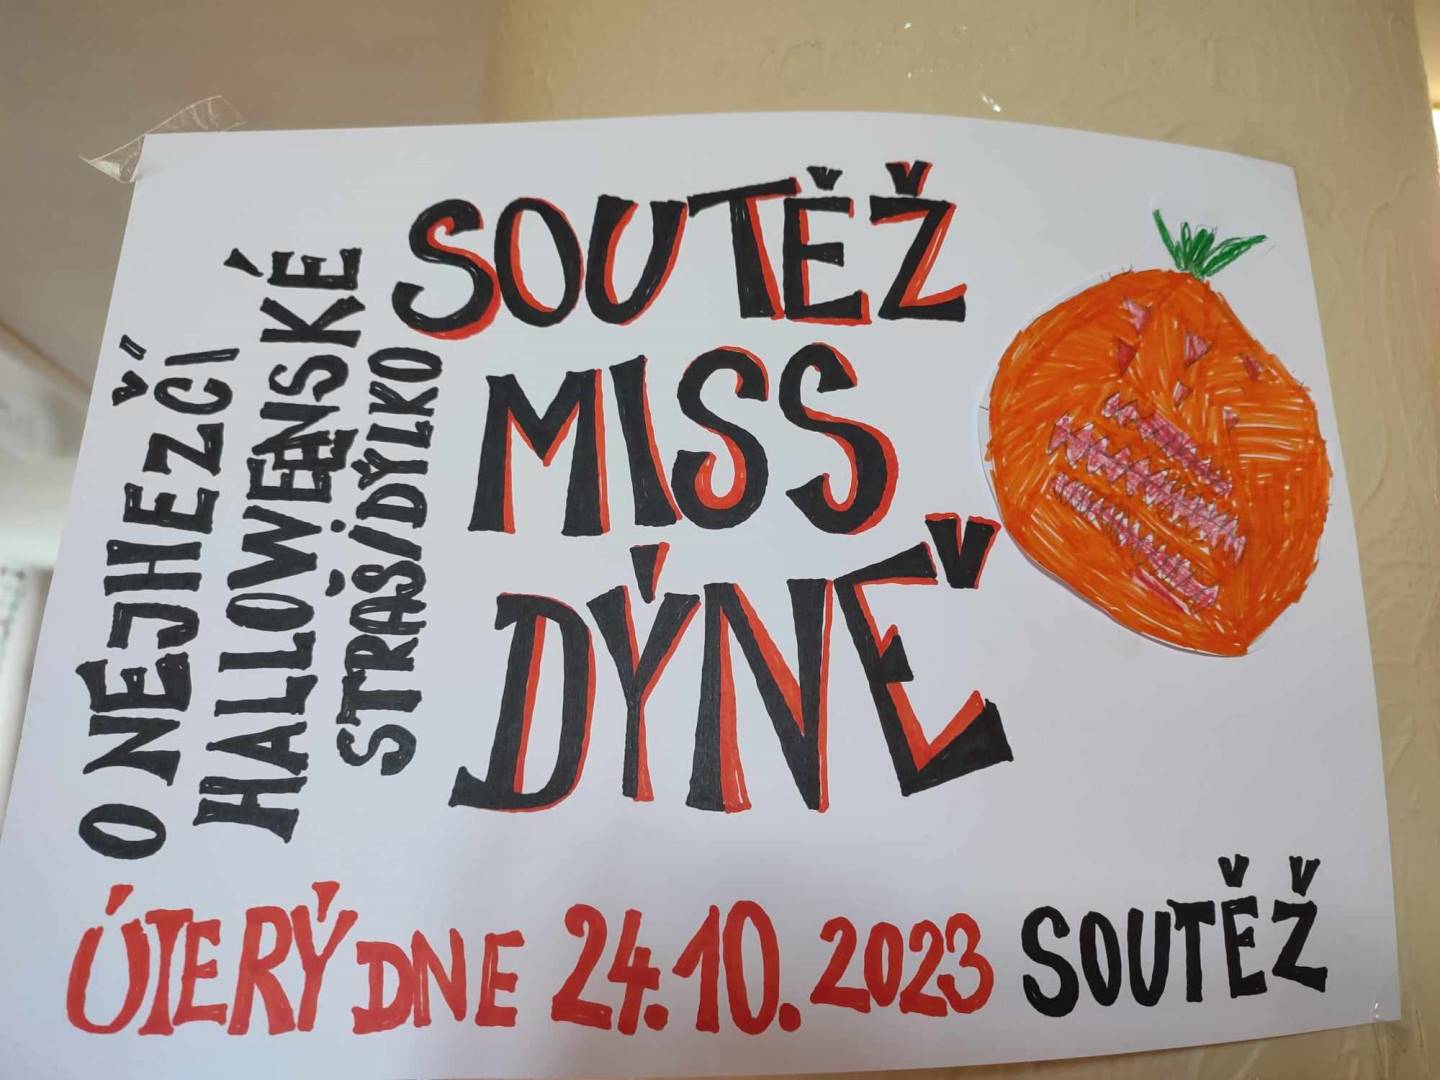 SOUTĚŽ
MISS
DÝNĚ
O NEJHEZČÍ
HALLOWENSKÉ
STRAŠIDÝLKO
ÚTERÝ DNE 24.10.2023 SOUTĚŽ